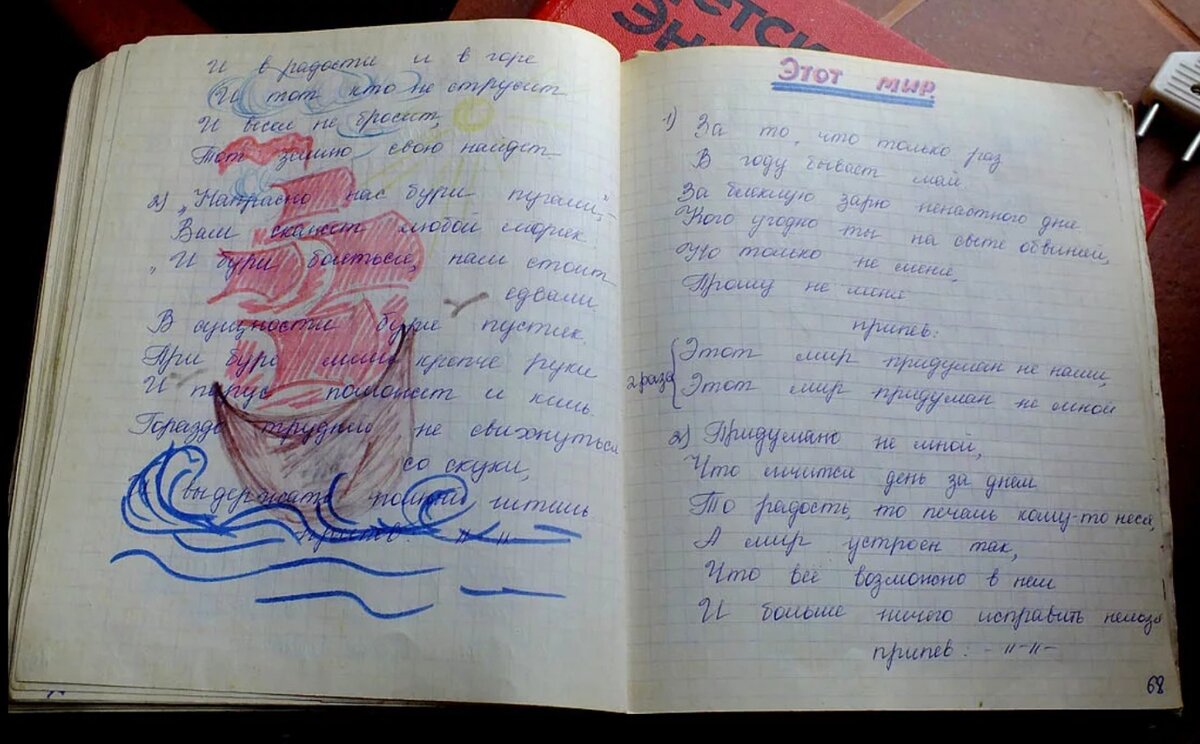 И в радости и в горе
И тот кто не струсит
И весел не бросит,
Тот землю свою найдет
2) „Напрасно нас бури пугали,"–
Вам скажет любой моряк.
„И бури бояться, вам стоит
едвали.
В сущности буря пустяк.
При буре лишь крепче руки
И парус поможет и киль.
Гораздо трудней не свихнуться
со скуки,
И выдержать полный штиль
Припев: –"–"–
ЭТОТ МИР.
1) За то, что только раз
В году бывает май
За блеклую зарю ненастного дня.
Кого угодно ты на свете обвиняй,
Но только не меня,
Прошу не меня
припев:
2 раза Этот мир придуман не нами,
Этот мир придуман не мной
2) Придумано не мной,
Что мчится день за днем
То радость, то печаль кому-то неся,
А мир устроен так,
Что всё возможно в нем
И больше ничего исправить нельзя
припев: –"–"–
68
ЭТСК
ЭН